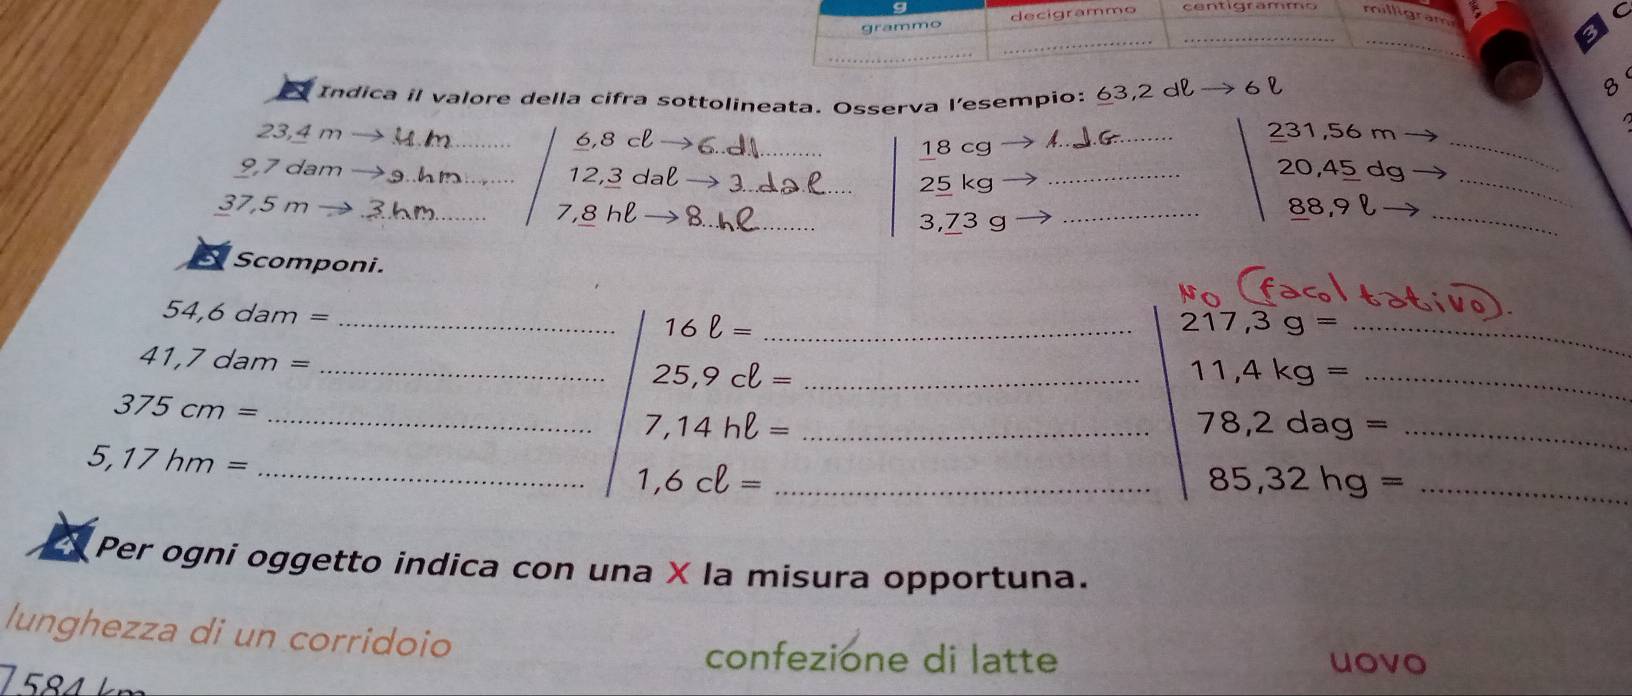 g
grammo decigrammo centigrammo
3
2 Indica il valore della cifra sottolineata. Osserva l'esempio: 63,2 dℓ → 6 ℓ
23,4 m → 4 m 6,8 cℓ → 6 dl 18 cg → 1 dG 231,56 m →
9,7 dam → 9 hm 12,3 daℓ → 3 daℓ 25 kg → 20,45 dg →
37,5 m → 3 hm 7,8 hℓ → 8 hℓ 3,73 g → 88,9 ℓ →
3 Scomponi.
NO (facoltativo).
54,6 dam = 16 ℓ = 217,3 g =
41,7 dam = 25,9 cℓ = 11,4 kg =
375 cm = 7,14 hℓ = 78,2 dag =
5,17 hm = 1,6 cℓ = 85,32 hg =
4 Per ogni oggetto indica con una X la misura opportuna.
lunghezza di un corridoio confezione di latte uovo